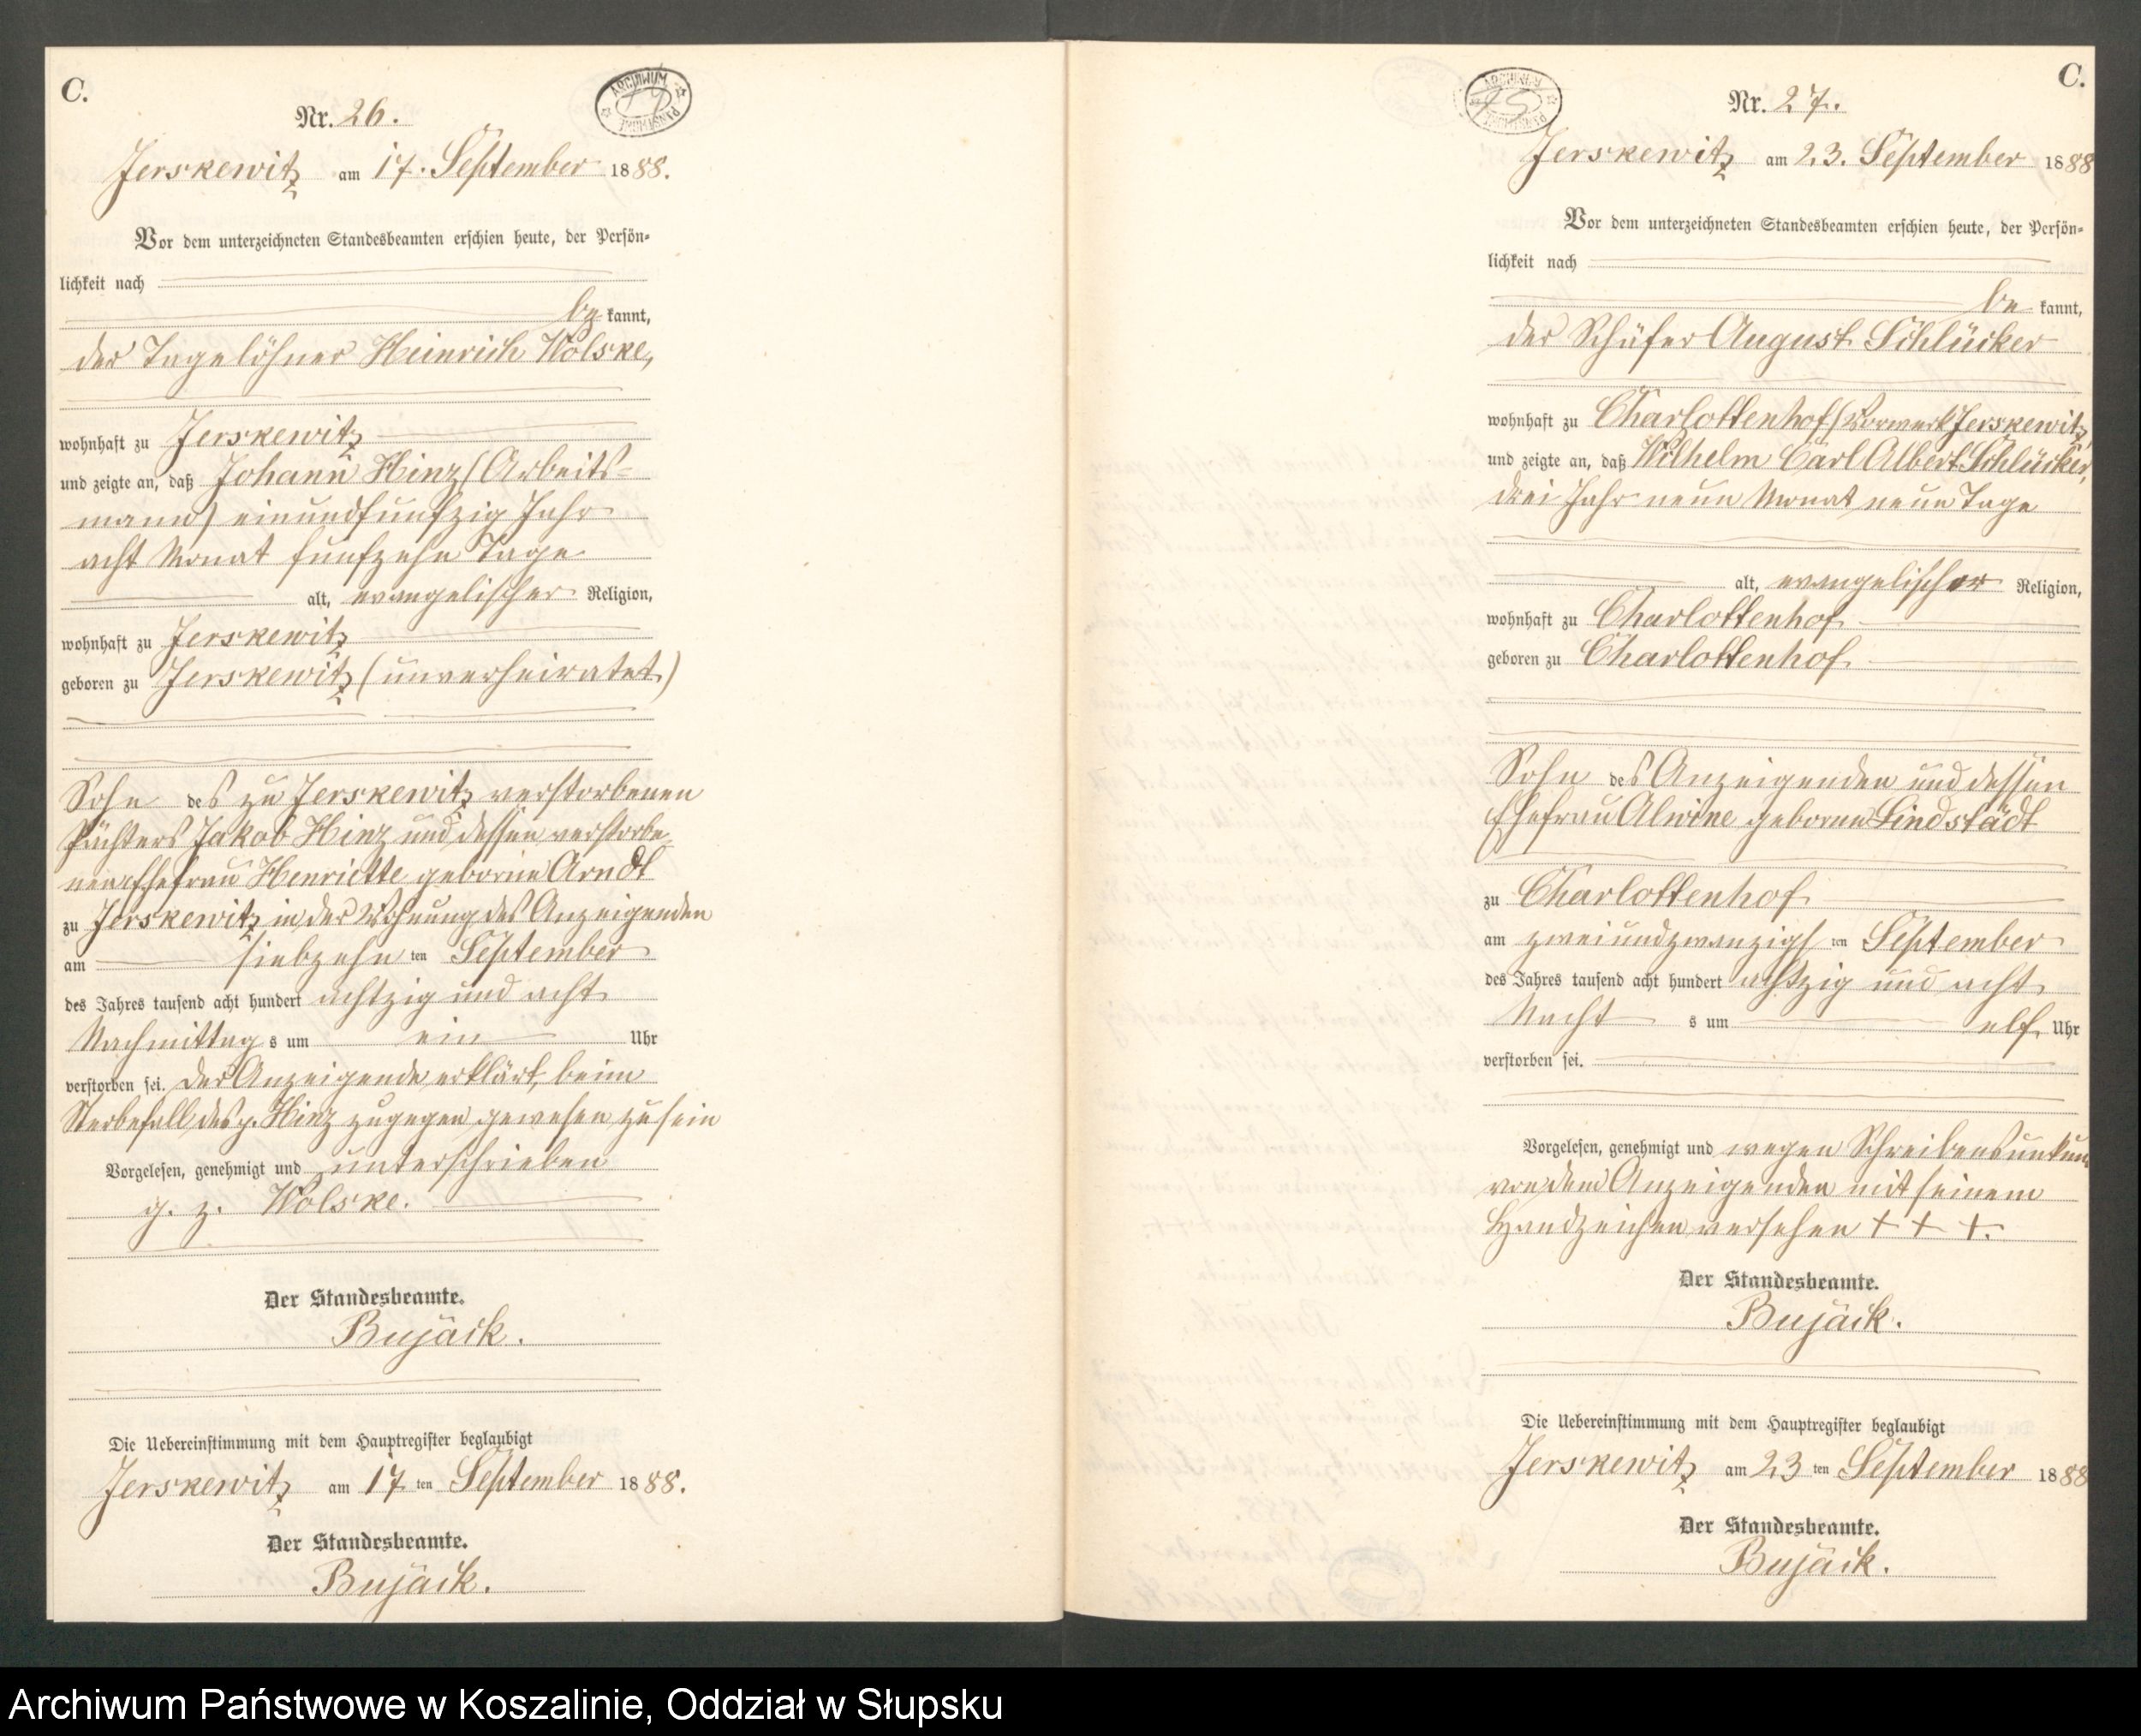 C.
Nr. 26.
ARCHIWUM PAŃSTWOWE
Jerskewitz am 17. September 1888.
Vor dem unterzeichneten Standesbeamten erschien heute, der Persön-
lichkeit nach
be kannt,
der Tagelöhner Heinrich Wolske,
wohnhaft zu Jerskewitz
und zeigte an, daß Johann Hinz (Arbeits-
mann) einundfunfzig Jahr
acht Monat funfzehn Tage
alt, evangelischer Religion,
wohnhaft zu Jerskewitz
geboren zu Jerskewitz (unverheiratet)
Sohn des zu Jerskewitz verstorbenen
Pächters Jakob Hinz und dessen verstorbe-
nen Ehefrau Henriette geborne Arndt
zu Jerskewitz in der Wohnung des Anzeigenden
am siebzehn ten September
des Jahres tausend acht hundert achtzig und acht
Nachmittag s um ein Uhr
verstorben sei. Der Anzeigende erklärt, beim
Sterbefall des p. Hinz zugegen gewesen zu sein
Vorgelesen, genehmigt und unterschrieben
g. z. Wolske.
Der Standesbeamte.
Bujäck.
Die Uebereinstimmung mit dem Hauptregister beglaubigt
Jerskewitz am 17 ten September 1888.
Der Standesbeamte.
Bujäck.
C.
Nr. 27.
Jerskewitz am 23. September 1888
Vor dem unterzeichneten Standesbeamten erschien heute, der Persön-
lichkeit nach
be kannt,
der Schäfer August Schlücker
wohnhaft zu Charlottenhof (Vorwerk Jerskewitz,
und zeigte an, daß Wilhelm Carl Albert Schlücker,
drei Jahr neun Monat neun Tage
alt, evangelischer Religion,
wohnhaft zu Charlottenhof
geboren zu Charlottenhof
Sohn des Anzeigenden und dessen
Ehefrau Alwine geborne Lindstädt
zu Charlottenhof
am zweiundzwanzigs ten September
des Jahres tausend acht hundert achtzig und acht
Nacht s um elf Uhr
verstorben sei.
Vorgelesen, genehmigt und wegen Schreibensunkun
von dem Anzeigenden mit seinem
Handzeichen versehen + + +.
Der Standesbeamte.
Bujäck.
Die Uebereinstimmung mit dem Hauptregister beglaubigt
Jerskewitz am 23 ten September 1888
Der Standesbeamte.
Bujäck.
Archiwum Państwowe w Koszalinie, Oddział w Słupsku